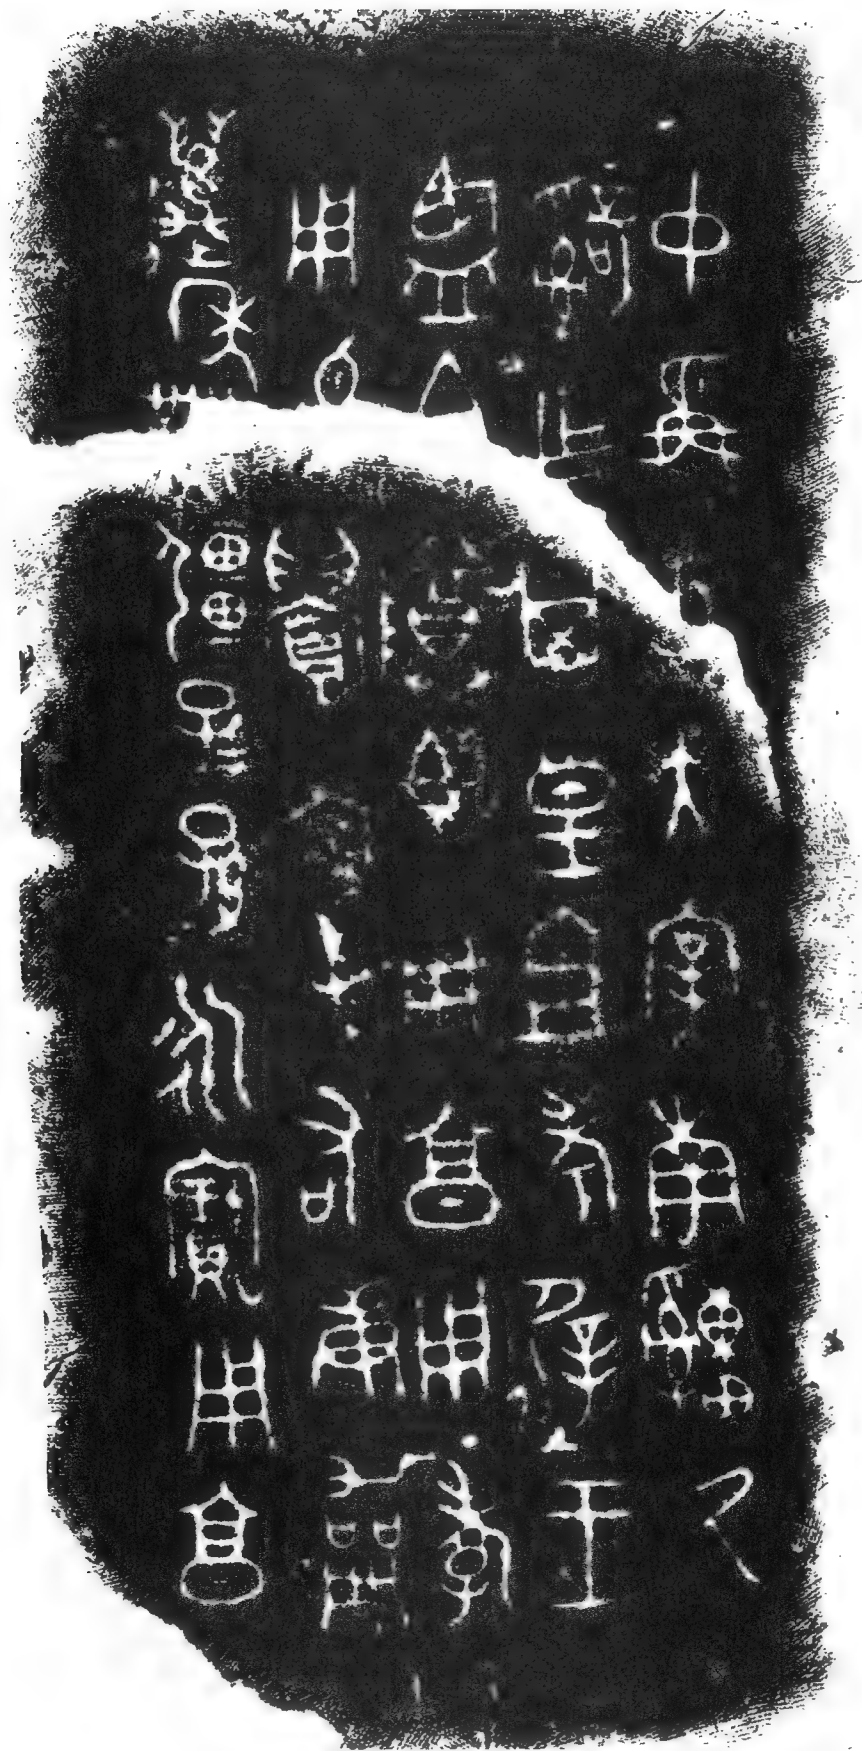 中爯父大宰南申厥
辭乍其皇且考夷王
監白尊簋用享用孝
用易眉壽屯右康勔
萬年無疆子子孫孫永寶用享